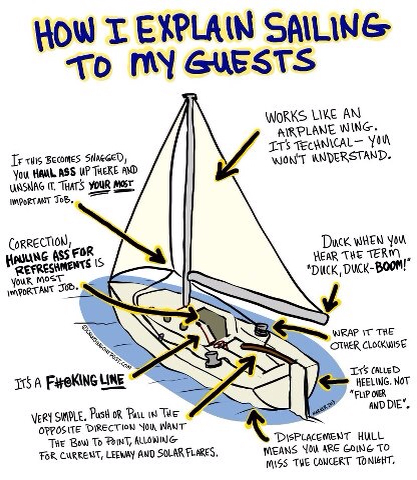 HOW I EXPLAIN SAILING
TO MY GUESTS
WORKS LIKE AN
AIRPLANE WING.
IT'S TECHNICAL - YOU
WON'T UNDERSTAND.
IF THIS BECOMES SNAGGED,
YOU HAUL ASS UP THERE AND
UNSNAG IT. THAT'S YOUR MOST
IMPORTANT JOB.
CORRECTION,
HAULING ASS FOR
REFRESHMENTS IS
YOUR MOST
IMPORTANT JOB.
DUCK WHEN YOU
HEAR THE TERM
"DUCK, DUCK-BOOM!"
WRAP IT THE
OTHER CLOCKWISE
IT'S CALLED
HEELING. NOT
"FLIP OVER
AND DIE".
IT'S A F#@KING LINE
VERY SIMPLE. PUSH OR PULL IN THE
OPPOSITE DIRECTION YOU WANT
THE BOW TO POINT, ALLOWING
FOR CURRENT, LEEWAY AND SOLAR FLARES.
DISPLACEMENT HULL
MEANS YOU ARE GOING TO
MISS THE CONCERT TONIGHT.